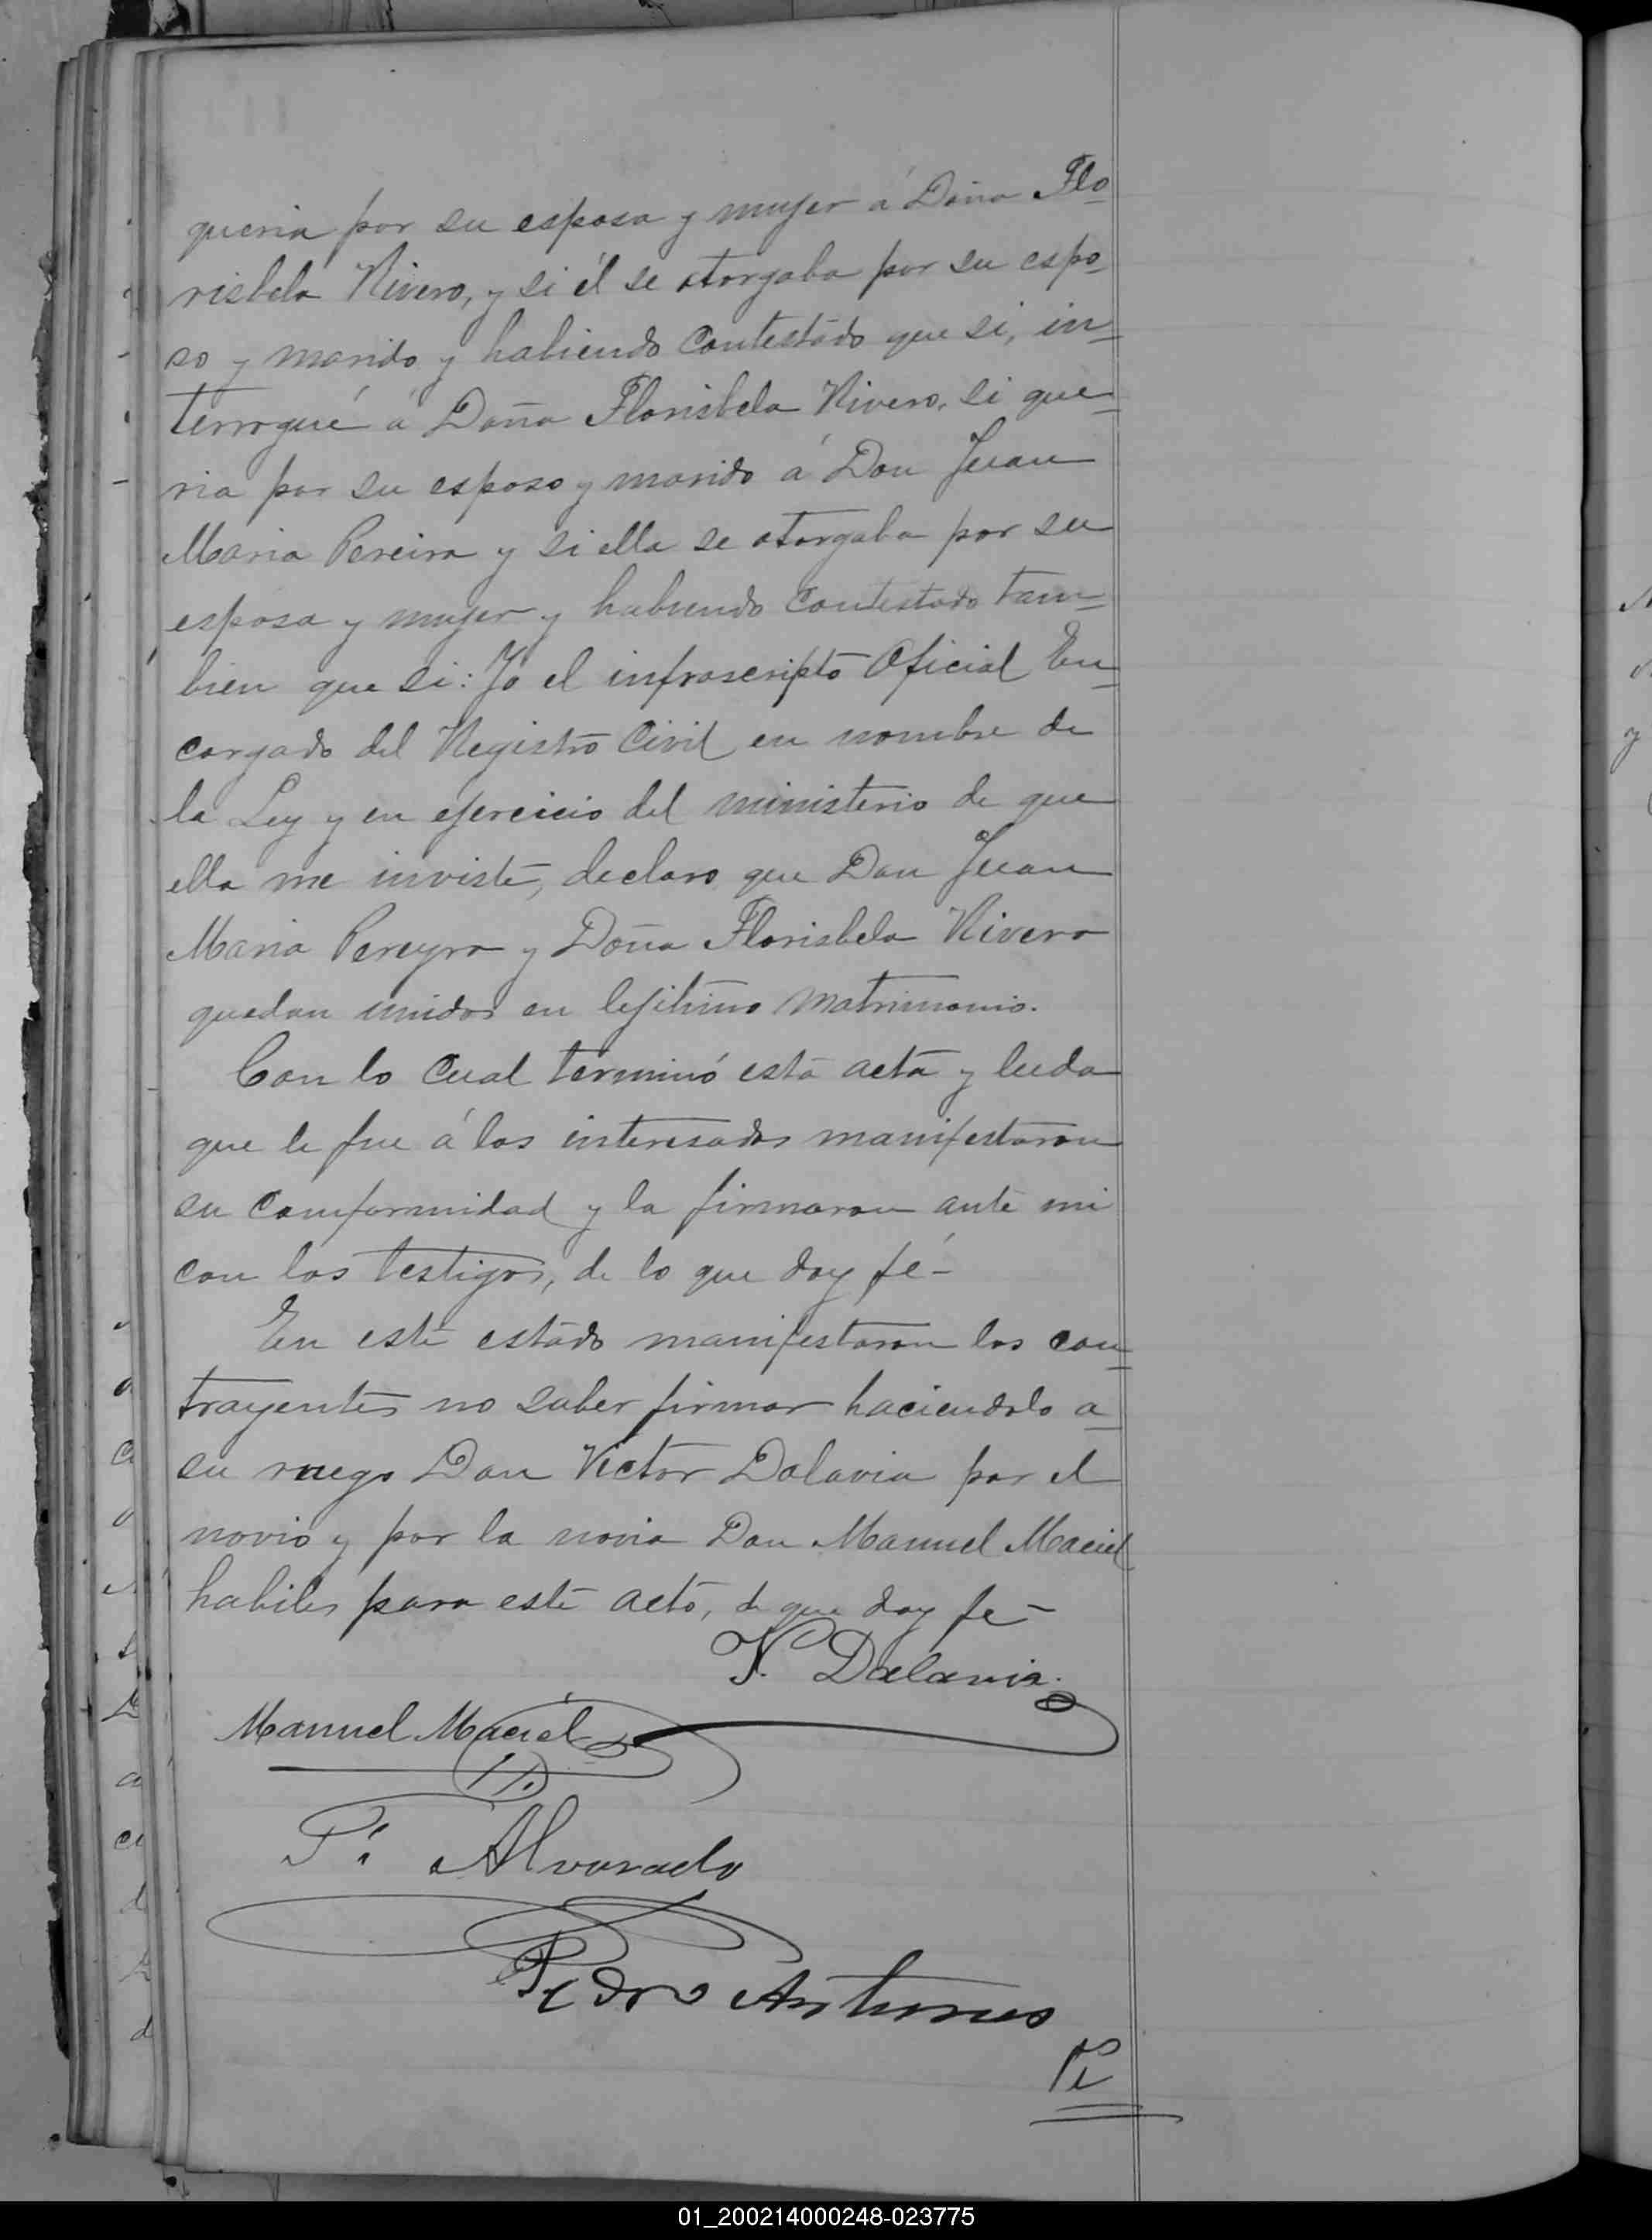 queria por su esposa y mujer á Doña Flo-
risbela Rivero, y si él se otorgaba por su espo-
so y marido y habiendo contestado que si, in-
terrogué á Doña Florisbela Rivero, si que-
ria por su esposo y marido á Don Juan
Maria Pereira y si ella se otorgaba por su
esposa y mujer y habiendo contestado tam-
bien que si: Yo el infrascripto Oficial En-
cargado del Registro Civil en nombre de
la Ley y en ejercicio del ministerio de que
ella me inviste, declaro que Don Juan
Maria Pereyra y Doña Florisbela Rivero
quedan unidos en lejitimo matrimonio.
Con lo cual terminó esta acta y leida
que le fue á los interesados manifestaron
su comformidad y la firmaron ante mi
con los testigos, de lo que doy fé-
En este estado manifestaron los con-
trayentes no saber firmar haciendolo a
su ruego Don Victor Dalavia por el
novio y por la novia Don Manuel Maciel
habiles para este acto, de que doy fe-
V. Dalavia.
Manuel Maciel
P. Alvarado
Pedro Antunes
01_200214000248-023775